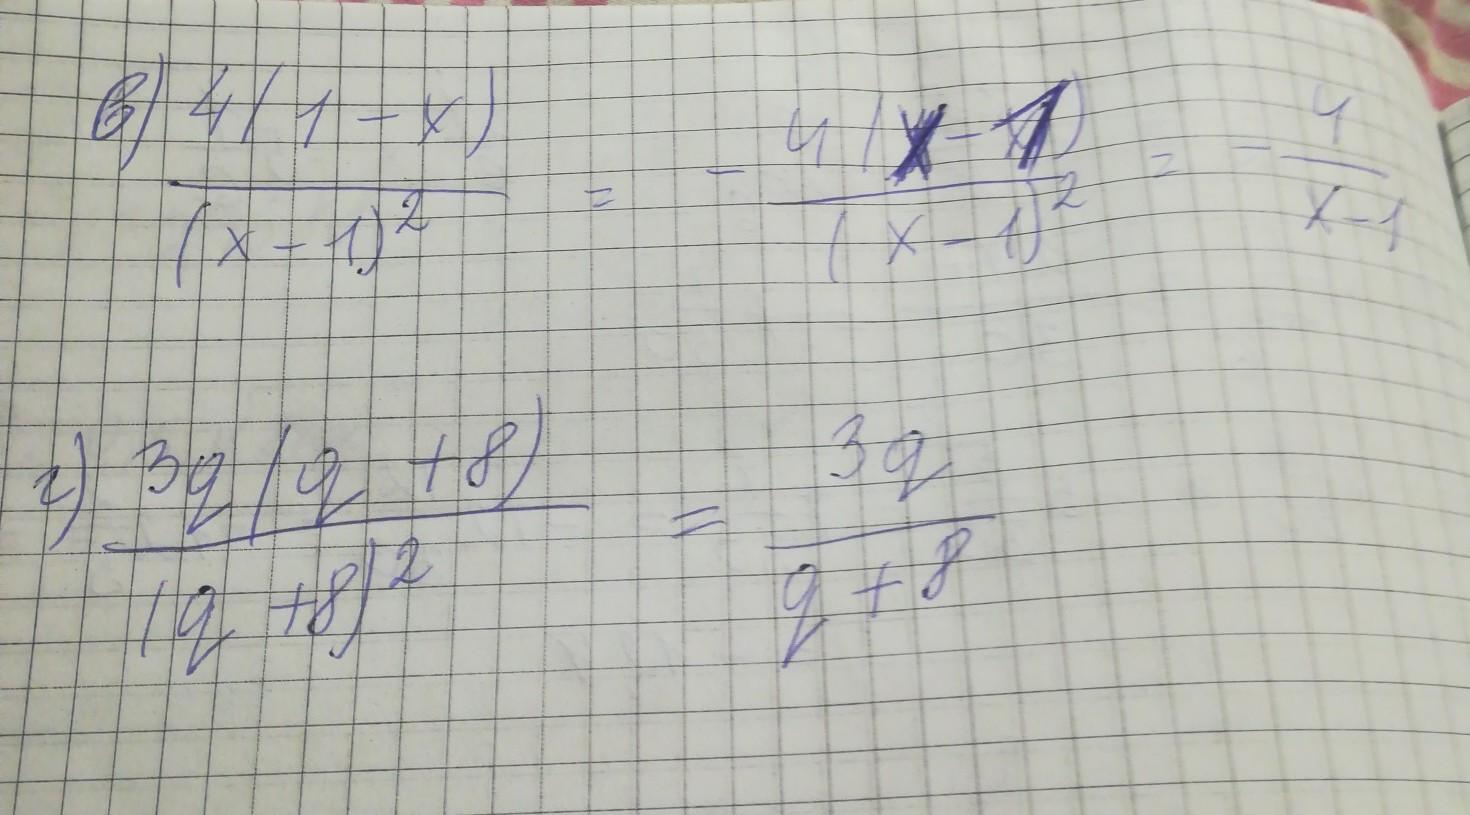 в) 4(1-x)/(x-1)² = - 4(x-1)/(x-1)² = - 4/x-1
г) 3q(q+8)/(q+8)² = 3q/q+8